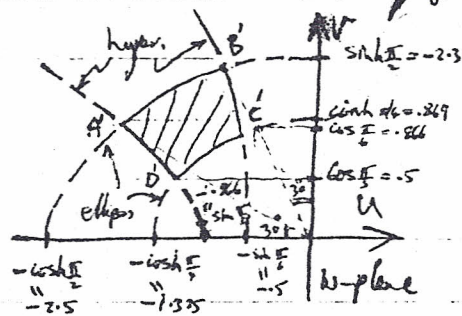 hyper.
B'
V
sinh π/2 = -2.3
A'
C'
sinh π/4 = .869
cos π/6 = .866
D'
cos π/3 = .5
ellipses
-.866
"
sin π/3
30°
30°
U
-cosh π/2
"
-2.5
-cosh π/4
"
-1.325
-sin π/6
"
-.5
w-plane